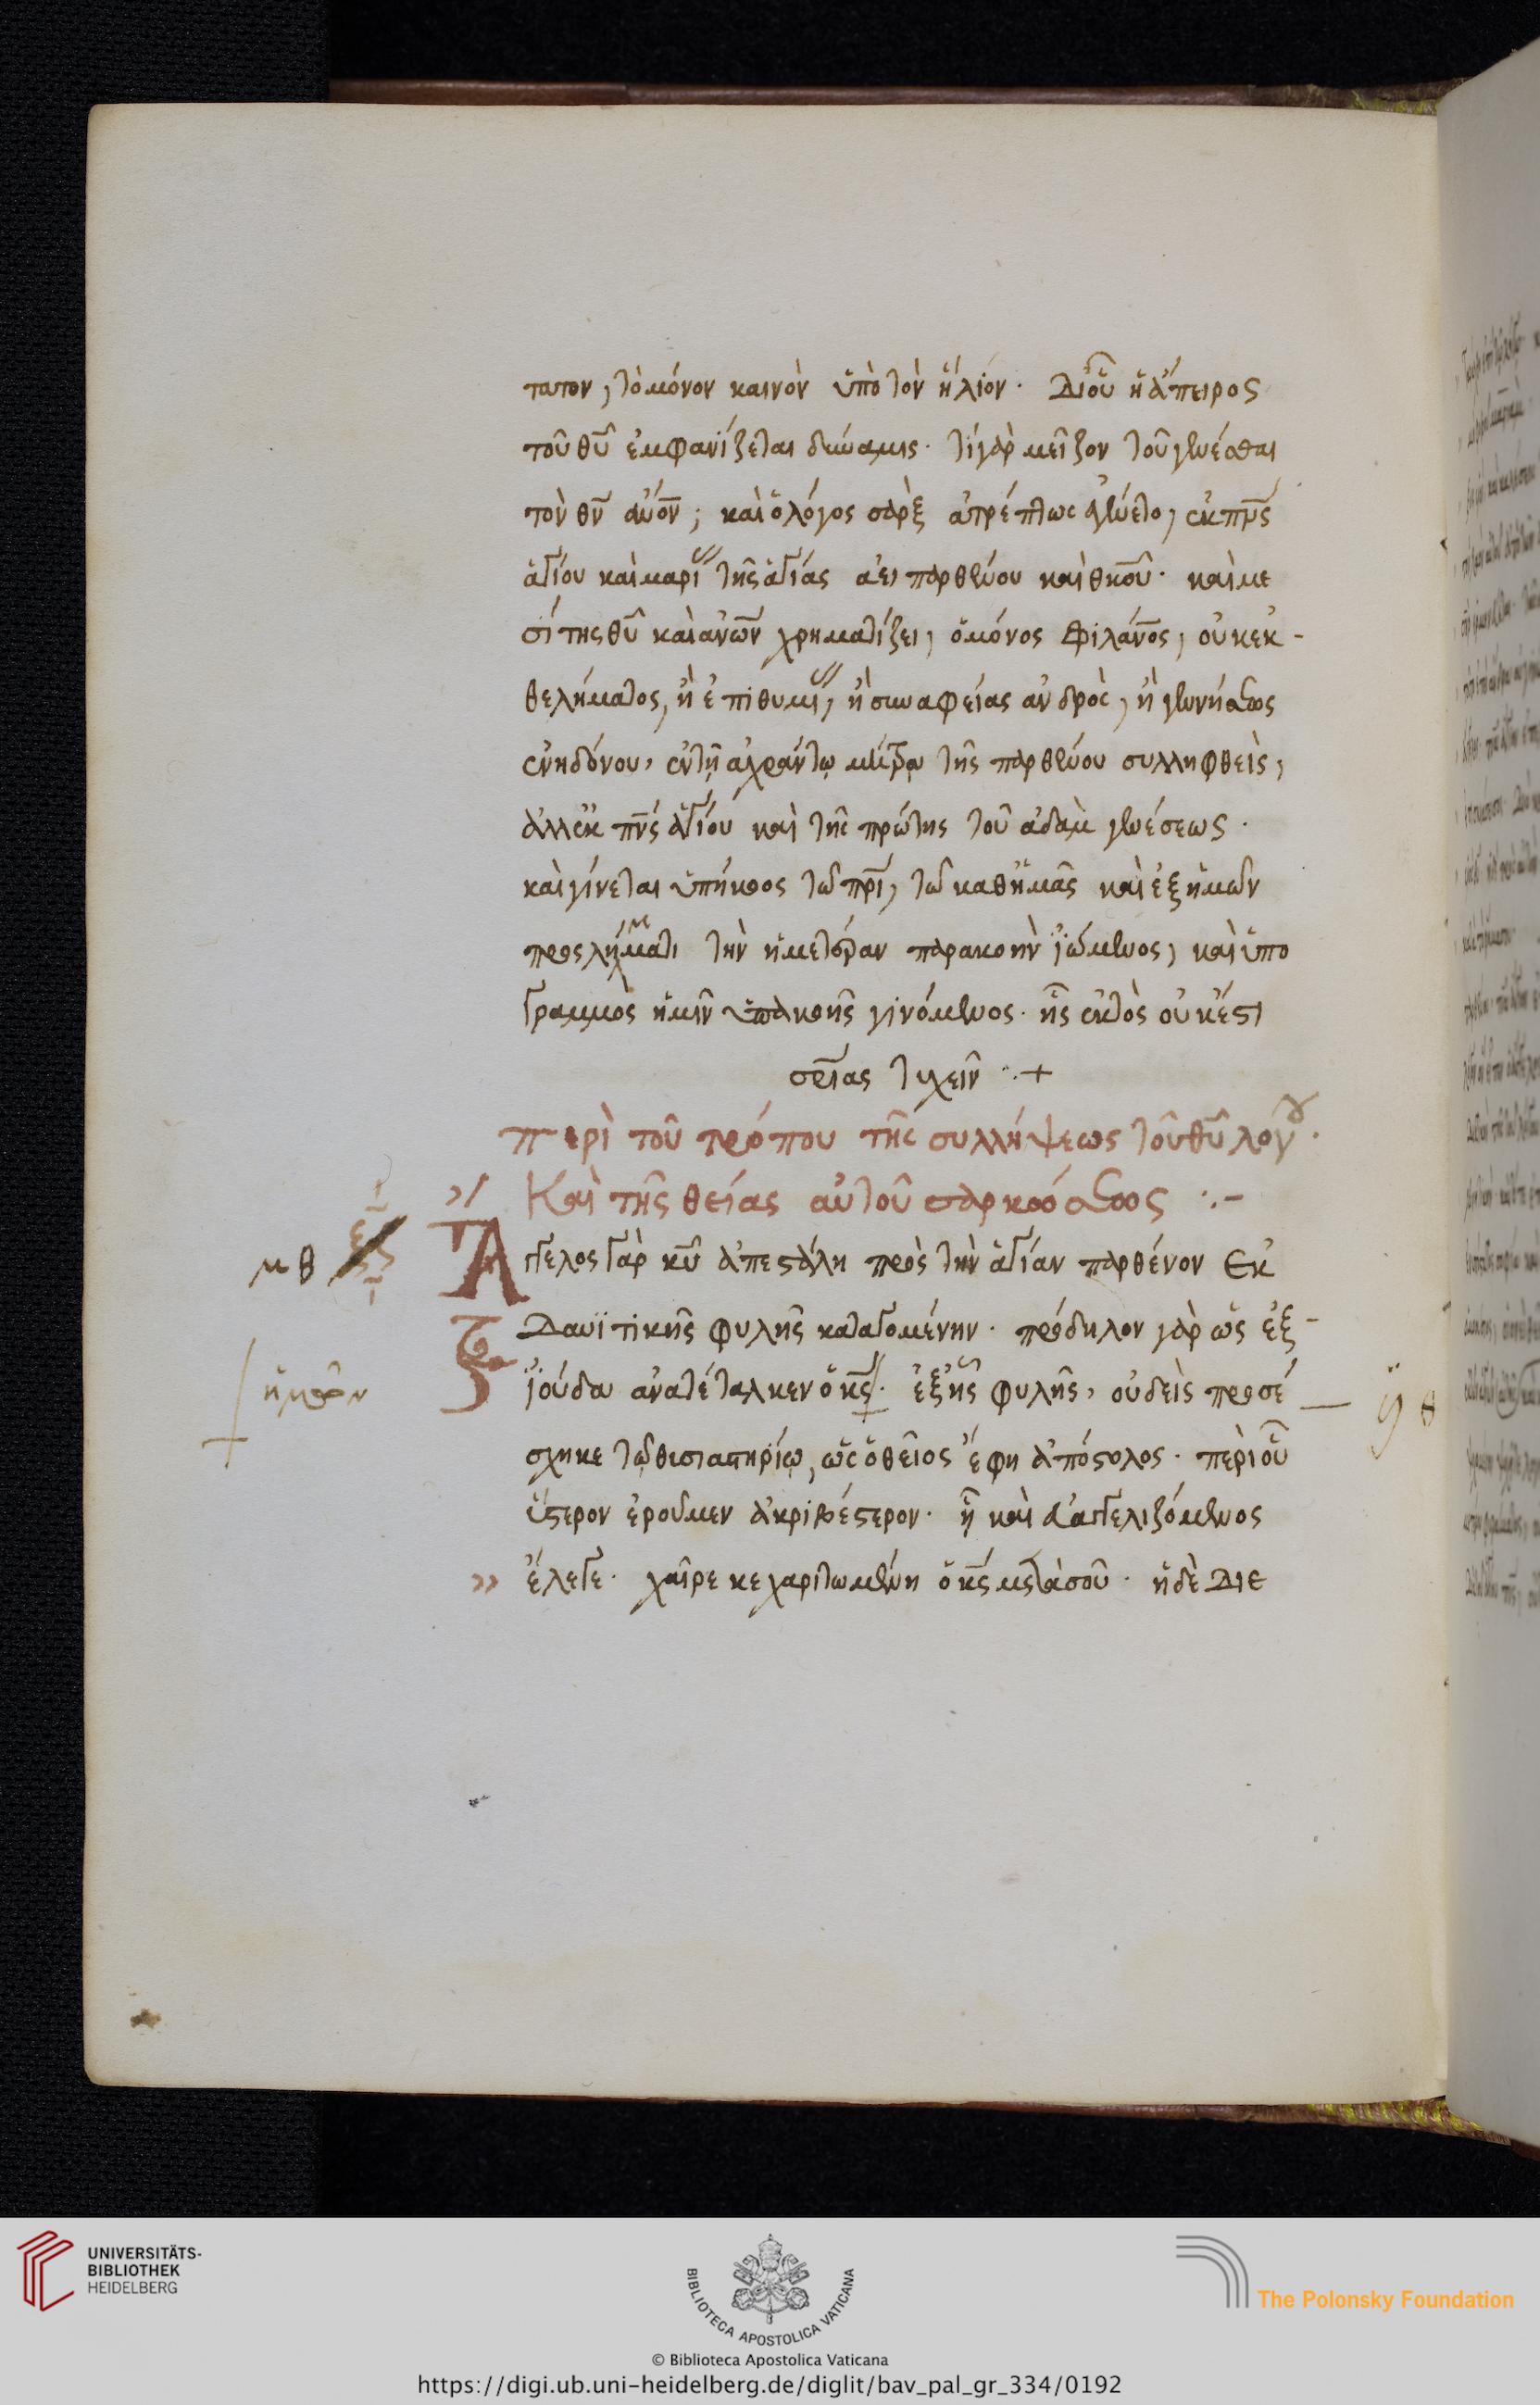 τατον, τὸ μόνον καινὸν ὑπὸ τὸν ἥλιον. Δι' οὗ ἡ ἄπειρος
τοῦ θυ̅ ἐμφανίζεται δύναμις. τί γὰρ μεῖζον τοῦ γενέσθαι
τὸν θν̅ ἄνον̅; καὶ ὁ λόγος σὰρξ ἀτρέπτως ἐγένετο, ἐκ πνς̅
ἁγίου καὶ μαρί τῆς ἁγίας ἀει παρθένου καὶ θκου̅. καὶ με
σίτης θυ̅ καὶ ανων̅ χρηματίζει, ὁ μόνος φιλάνος̅, οὐκ ἐκ -
θελήματος, ἢ ἐπιθυμί, ἢ συναφείας ἀνδρὸς, ἢ γεννήσεως
ἐνηδόνου, ἐν τῇ ἀχράντω μήτρα τῆς παρθένου συλληφθεὶς,
ἀλλ' ἐκ πνς̅ ἁγίου καὶ τῆς πρώτης τοῦ ἀδὰμ γενέσεως.
καὶ γίνεται ὑπήκοος τῶ πρι̅, τῶ καθ' ἡμᾶς καὶ ἐξ ἡμῶν
προσλήμματι τὴν ἡμετέραν παρακοὴν ἰώμενος, καὶ ὑπο
γραμμὸς ἡμῖν ὑπακοῆς γινόμενος. ἧς ἐκτὸς οὐκ ἔστι
σρίας̅ τυχεῖν ∴ +
περὶ τοῦ τρόπου τῆς συλλήψεως τοῦ θυ̅ λόγου.
Καὶ τῆς θείας αὐτοῦ σαρκώσεως :-
μθ
Ἄγγελος γὰρ κυ̅ ἀπεστάλη πρὸς τὴν ἁγίαν παρθένον Ἐκ
Δαυϊτικῆς φυλῆς καταγομένην. πρόδηλον γὰρ ὡς ἐξ -
ἡμῶν
ἰούδα ἀνατέταλκεν ὁ κς̅. ἐξ ἧς φυλῆς, οὐδεὶς προσέ
σχηκε τῶ θυσιαστηρίω, ὡς ὁ θεῖος ἔφη ἀπόστολος. περὶ οὗ
ὕστερον ἐροῦμεν ἀκριβέστερον. ἣ καὶ εὐαγγελιζόμενος
» ἔλεγε. χαῖρε κεχαριτωμένη ὁ κς̅ μετὰ σοῦ. ἡ δὲ Διε
UNIVERSITÄTS-
BIBLIOTHEK
HEIDELBERG
BIBLIOTECA APOSTOLICA VATICANA
The Polonsky Foundation
© Biblioteca Apostolica Vaticana
https://digi.ub.uni-heidelberg.de/diglit/bav_pal_gr_334/0192